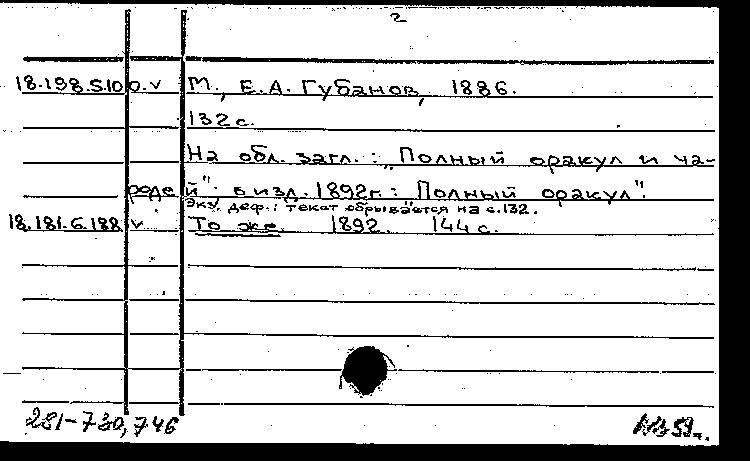 2
18.198.5.10 о.v М., Е.А. Губанов, 1886.
132 с.
На обл. загл.: „Полный оракул и ча-
родей"; в изд. 1892г.: „Полный оракул".
Экз. деф.: текст обрывается на с.132.
18.181.6.188 v То же. 1892. 144 с.
281-730,746